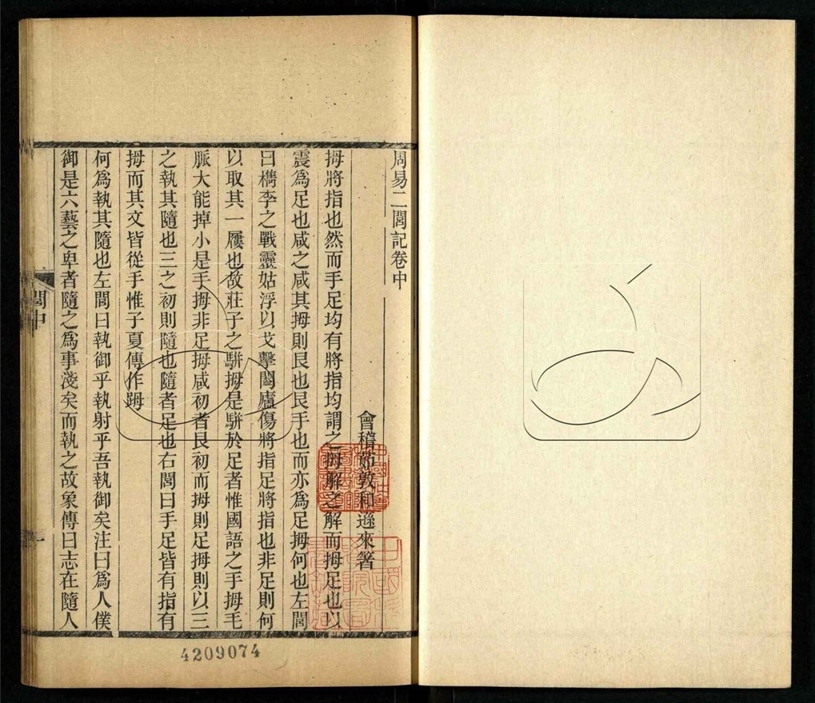 周易二閭記卷中
會稽茹敦和遜來箸
拇將指也然而手足均有將指均謂之拇解之解而拇足也以
震爲足也咸之咸其拇則艮也艮手也而亦爲足拇何也左閭
曰檇李之戰靈姑浮以戈擊闔廬傷將指足將指也非足則何
以取其一屨也故莊子之駢拇是駢於足者惟國語之手拇毛
脈大能掉小是手拇非足拇咸初者艮初而拇則足拇則以三
之執其隨也三之初則隨也隨者足也右閭曰手足皆有指有
拇而其文皆從手惟子夏傳作䟢
何爲執其隨也左閭曰執御乎執射乎吾執御矣注曰爲人僕
御是六藝之卑者隨之爲事淺矣而執之故象傳曰志在隨人
閭中
一
4209074